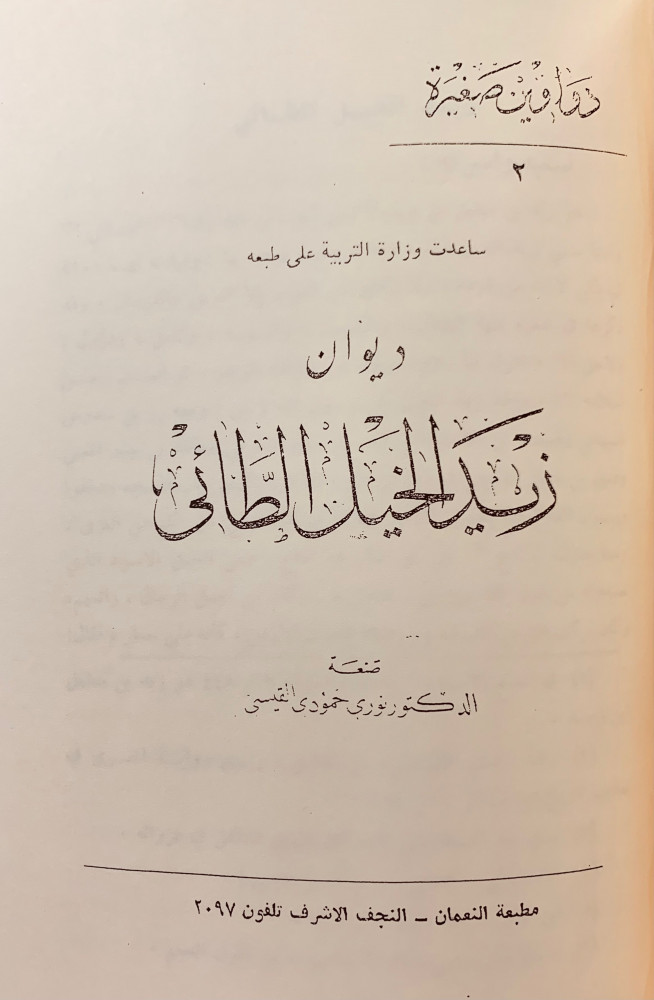 دواوين صغيرة
٢
ساعدت وزارة التربية على طبعه
ديوان
زيد الخيل الطائي
صنعة
الدكتور نوري حمودي القيسي
مطبعة النعمان – النجف الاشرف تلفون ٢٠٩٧